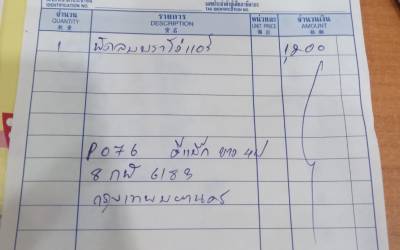 IDENTIFICATION NO.
เลขประจำตัวผู้เสียภาษีอากร
TAX IDENTIFICATION NO.
จำนวน
QUANTITY
รายการ
DESCRIPTION
หน่วยละ
UNIT PRICE
จำนวนเงิน
AMOUNT
1 1,200
P076 ดีแม็ก ขาว 4ป
8 กฬ 6183
กรุงเทพมหานคร